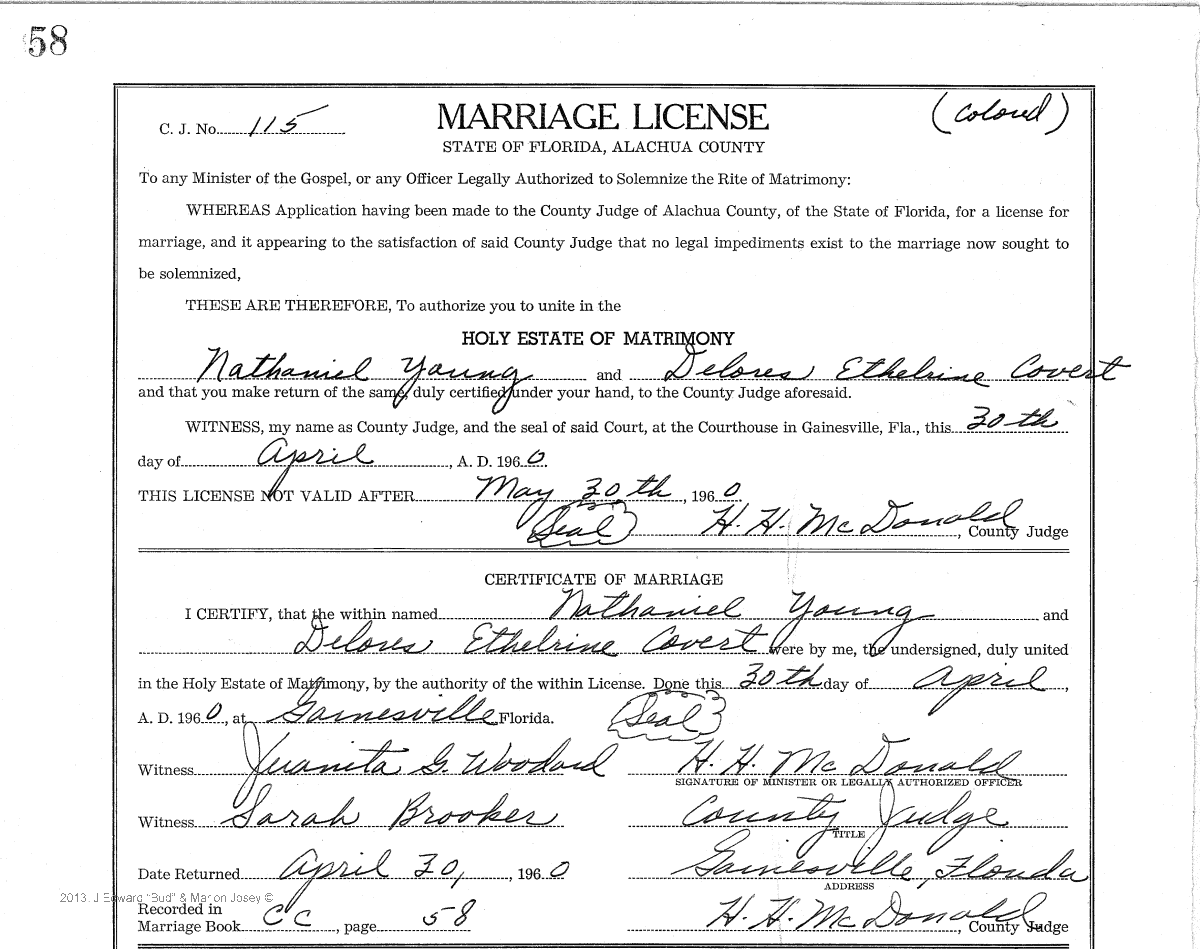 58
C. J. No. 115 MARRIAGE LICENSE (Colored)
STATE OF FLORIDA, ALACHUA COUNTY
To any Minister of the Gospel, or any Officer Legally Authorized to Solemnize the Rite of Matrimony:
WHEREAS Application having been made to the County Judge of Alachua County, of the State of Florida, for a license for
marriage, and it appearing to the satisfaction of said County Judge that no legal impediments exist to the marriage now sought to
be solemnized,
THESE ARE THEREFORE, To authorize you to unite in the
HOLY ESTATE OF MATRIMONY
Nathaniel Young and Delores Ethelrine Covert
and that you make return of the same, duly certified under your hand, to the County Judge aforesaid.
WITNESS, my name as County Judge, and the seal of said Court, at the Courthouse in Gainesville, Fla., this 30th
day of April, A. D. 1960.
THIS LICENSE NOT VALID AFTER May 30th, 1960
(Seal) H. H. McDonald, County Judge
CERTIFICATE OF MARRIAGE
I CERTIFY, that the within named Nathaniel Young and
Delores Ethelrine Covert were by me, the undersigned, duly united
in the Holy Estate of Matrimony, by the authority of the within License. Done this 30th day of April,
A. D. 1960, at Gainesville Florida. (Seal)
Witness Juanita G. Woodard H. H. McDonald
SIGNATURE OF MINISTER OR LEGALLY AUTHORIZED OFFICER
Witness Sarah Brooker County Judge
TITLE
Date Returned April 30, 1960 Gainesville, Florida
ADDRESS
2013. J Edward "Bud" & Marion Josey ©
Recorded in
Marriage Book CC, page 58 H. H. McDonald, County Judge